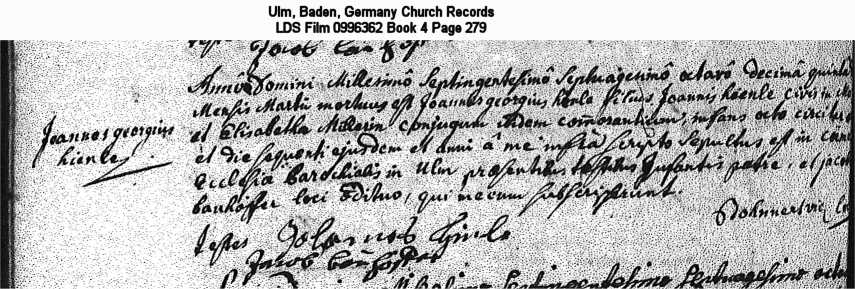 Ulm, Baden, Germany Church Records
LDS Film 0996362 Book 4 Page 279
testes Jacob
Anno Domini Millesimo Septingentesimo Septuagesimo octavo decima quinta
Mensis Martii mortuus est Joannes georgius hienle filius Joannis hienle civis in
Joannes georgius
hienle
et Elisabetha Millerin conjugum ibidem commorantium, infans octo circiter
et die sequenti ejusdem et anni a me infra scripto sepultus est in
Ecclesia Parochialis in Ulm praesentibus testibus Infantis patre, et jacob
banhoffer loci aedituo, qui mecum subscripserunt.
testes Johannes Hinle
Jacob
Septingentesimo Septuagesimo octa